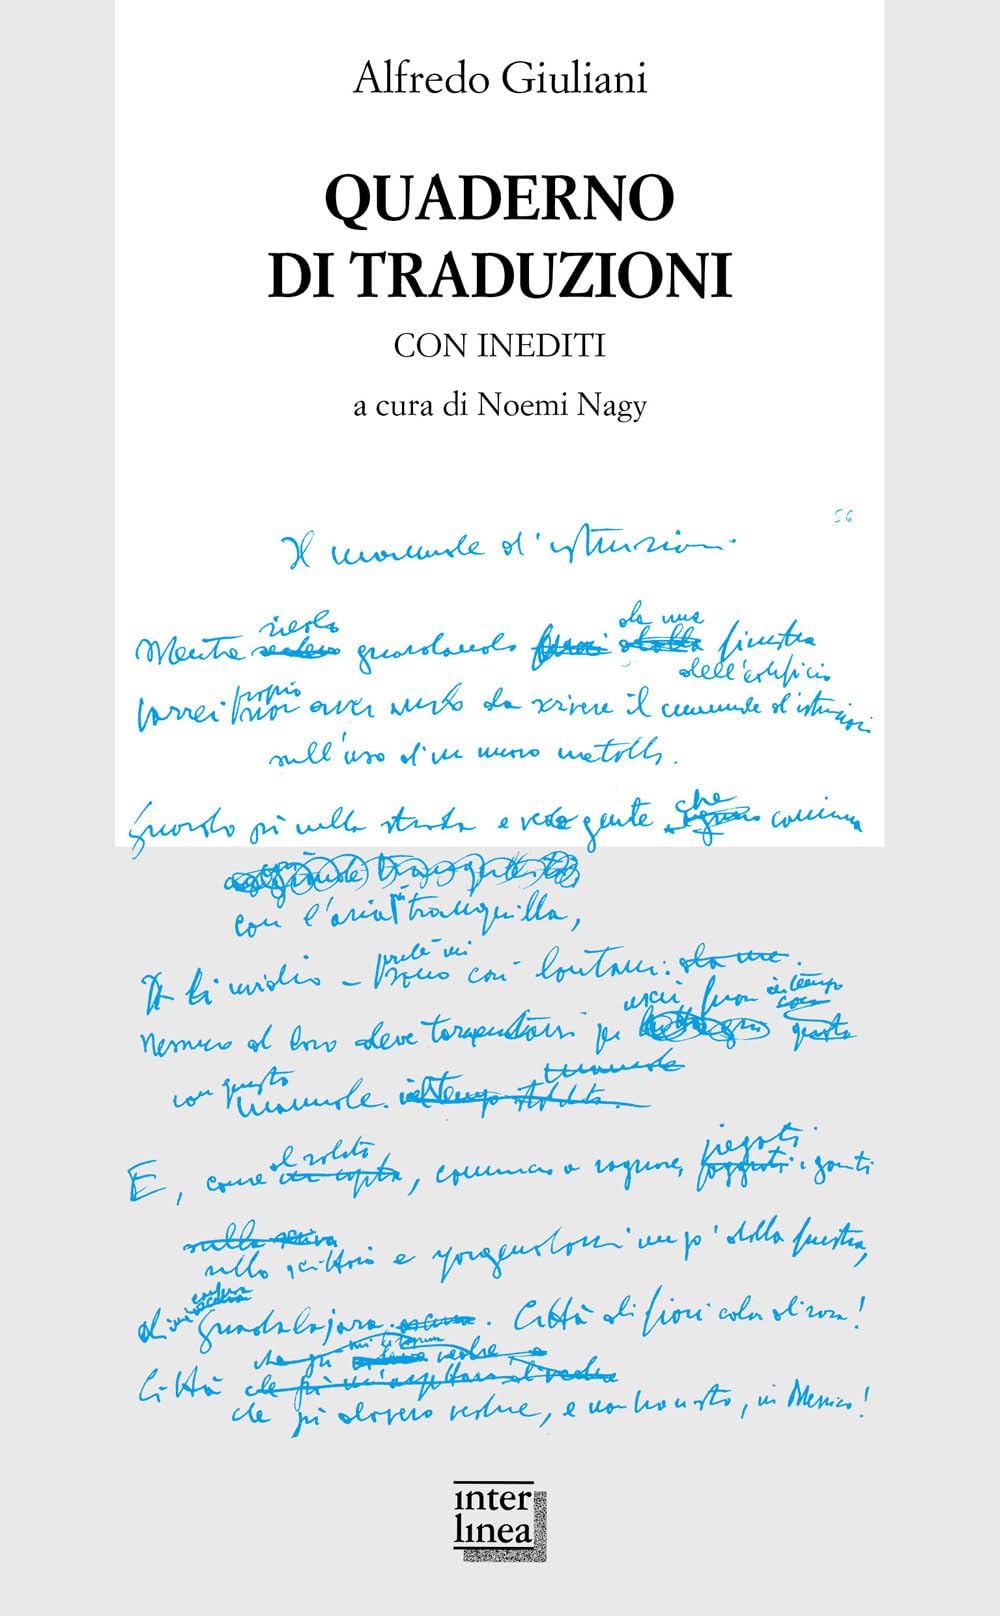 Alfredo Giuliani
QUADERNO
DI TRADUZIONI
CON INEDITI
a cura di Noemi Nagy
56
Il manuale d'istruzioni
siedo da una
Mentre guardando finestra
dell'edificio
proprio
vorrei non aver da scrivere il manuale d'istruzioni
sull'uso d'un nuovo metallo.
che
Guardo giù nella strada e vedo gente cammina
con l'aria tranquilla,
E li invidio – così lontani:
uscir fuori in tempo
Nessuno di loro deve per questo
con questo
manuale.
al solito piegati
E, come, comincio a sognare, i gomiti
sullo scrittoio e sporgendomi un po' dalla finestra,
Guadalajara. Città di fiori color di rosa!
Città
che più davvero vedere, e non ho visto, in Messico!
inter
linea